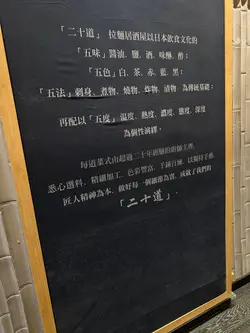 「二十道」 拉麵居酒屋以日本飲食文化的
「五味」醬油、鹽、酒、味醂、醋；
「五色」白、茶、赤、藍、黑；
「五法」刺身、煮物、燒物、炸物、漬物 為傳統基礎；
再配以「五度」溫度、熱度、濃度、態度、深度
為個性演繹。
每道菜式由超過二十年經驗的廚師主理，
悉心選料，精細加工，色彩豐富，千錘百鍊，以獨特手藝，
匠人精神為本，做好每一個細節為實，成就了我們的
「二十道」.